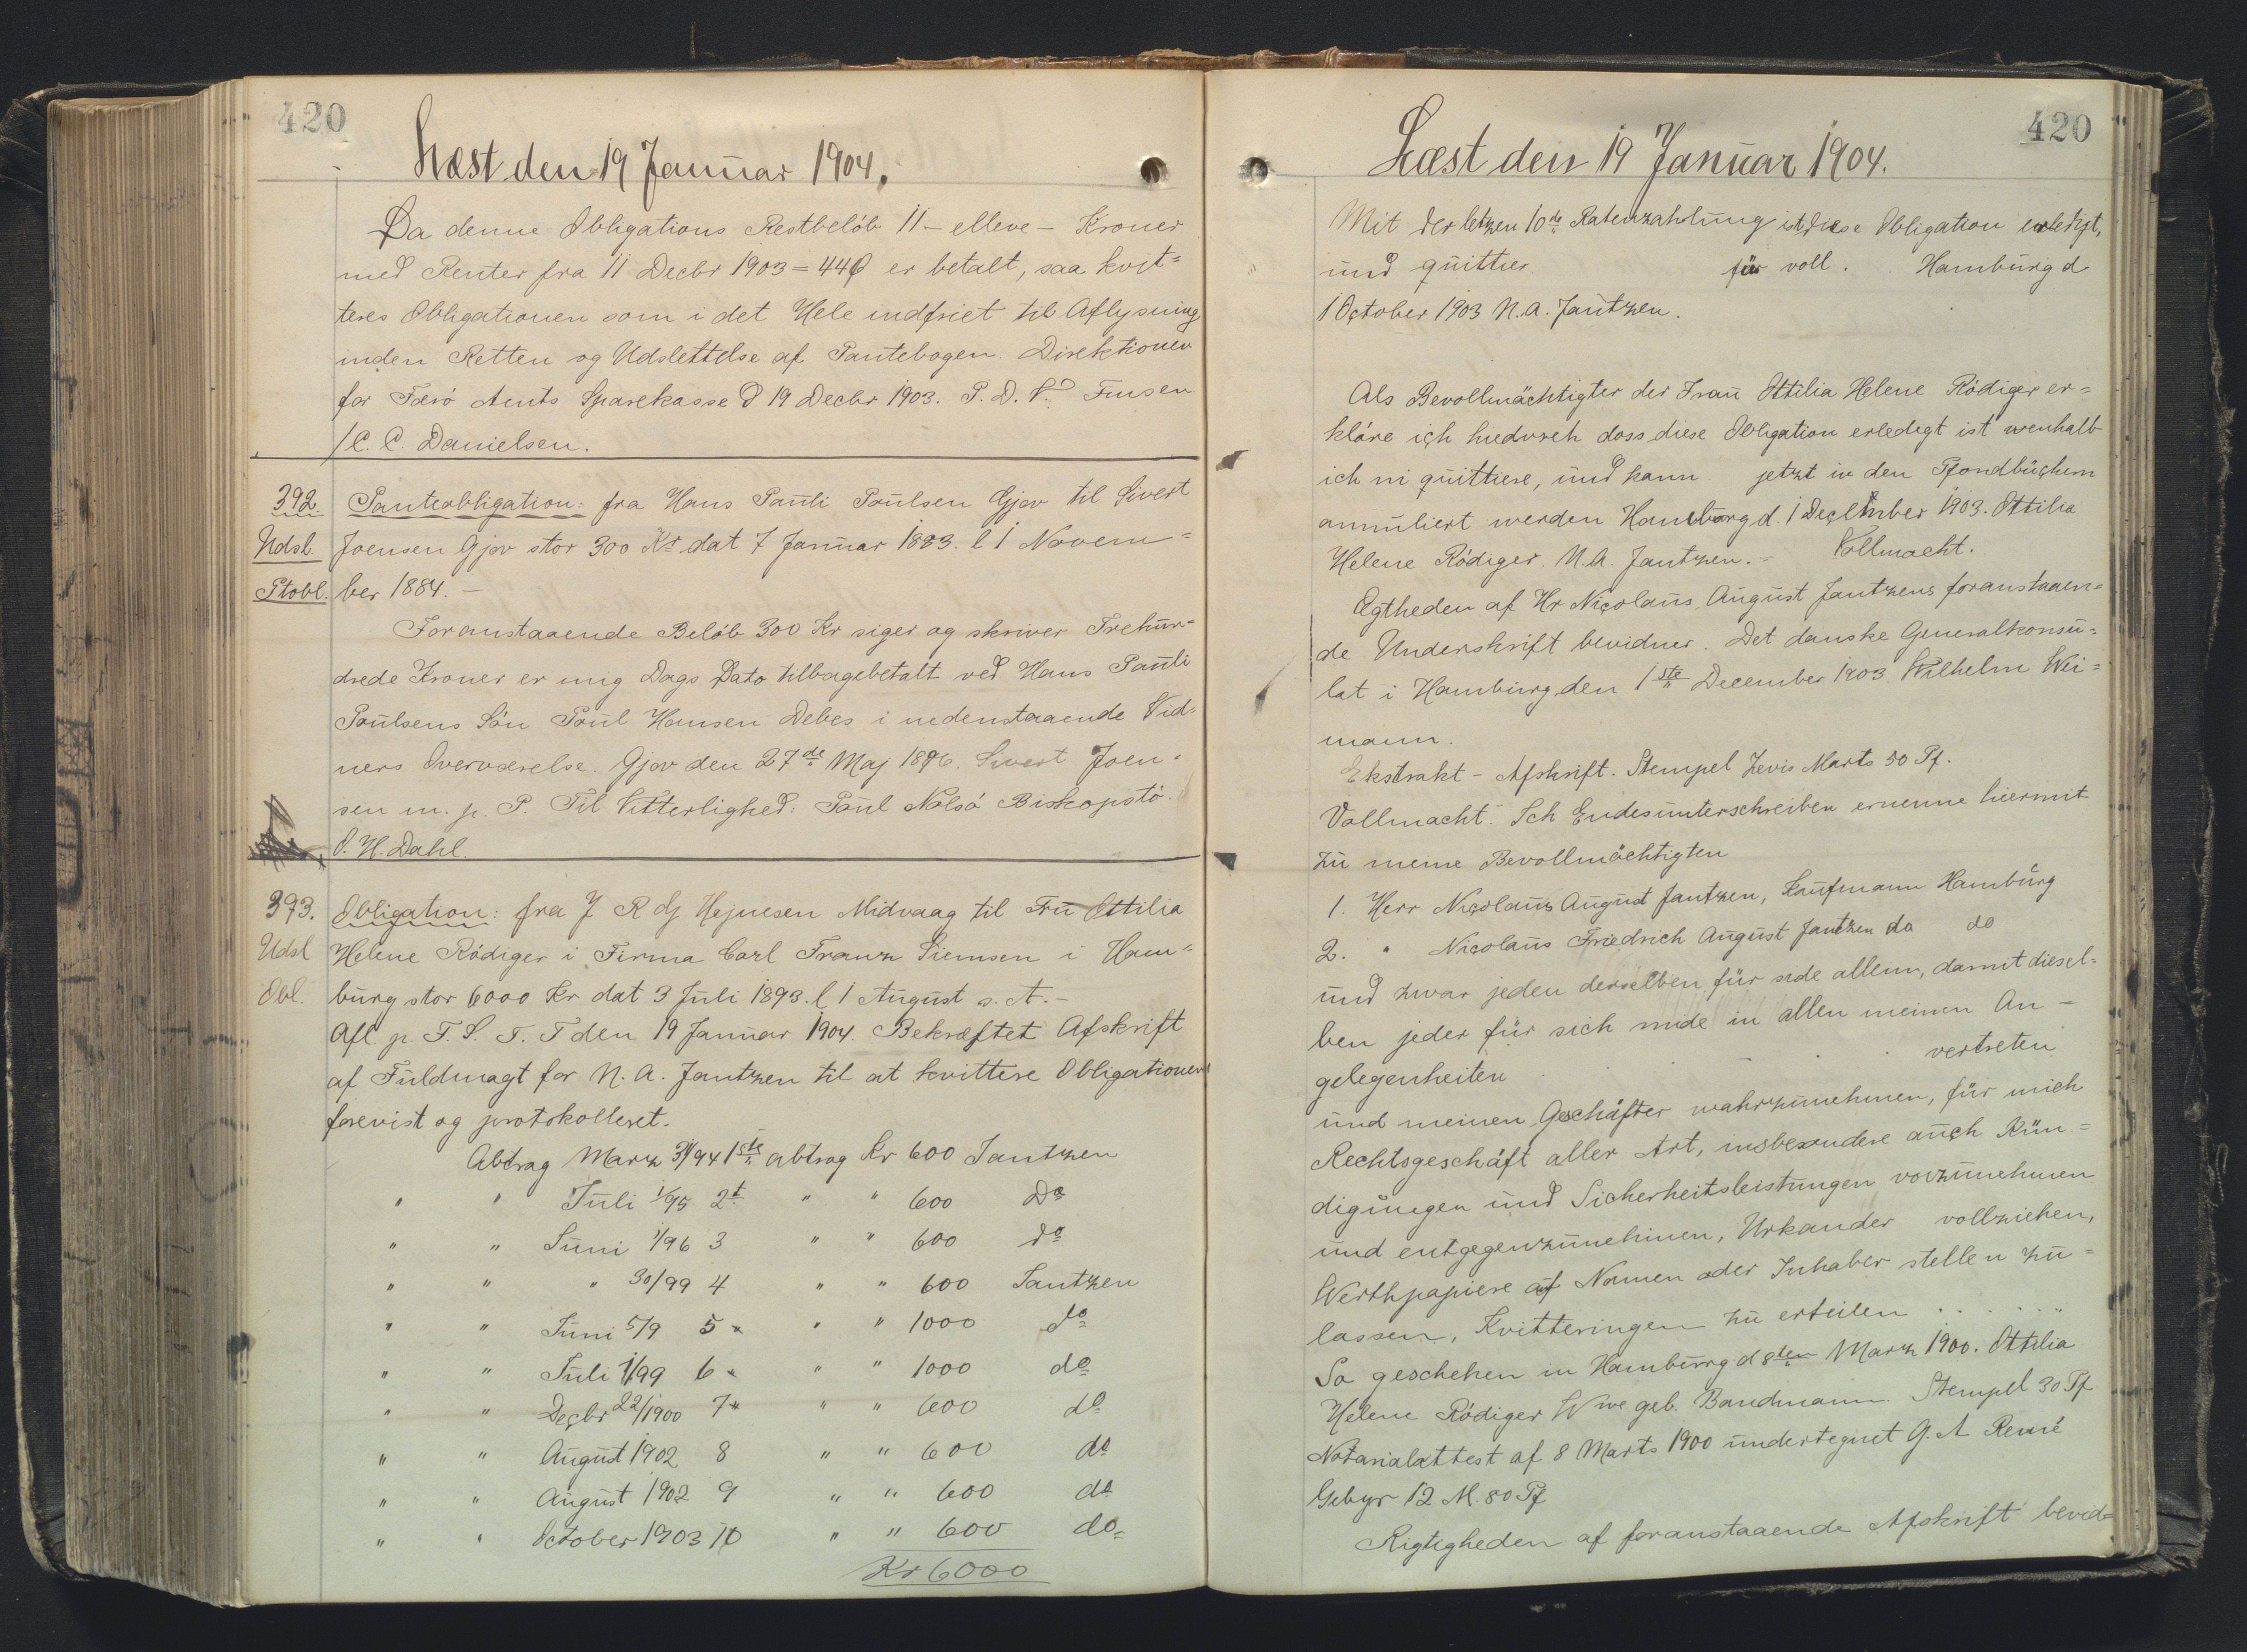 420
Læst den 19 Januar 1904.
Da denne Obligations Restbeløb 11 - elleve - Kroner
med Renter fra 11 Decbr 1903 = 44Ø er betalt, saa kvit=
teres Obligationen som i det Hele indfriet til Aflysning
inden Retten og Udslettelse af Pantebogen. Direktionen
for Færø Amts Sparekasse D 19 Decbr 1903. P. D. V. Finsen
/C. C. Danielsen.
392. Panteobligation: fra Hans Pauli Poulsen Gjov til Sivert
Udsl. Joensen Gjov stor 300 Kr dat 7 Januar 1883. l 1 Novem=
Ptobl. ber 1884. -
Foranstaaende Beløb 300 Kr siger og skriver Trehun=
drede Kroner er mig Dags Dato tilbagebetalt ved Hans Pauli
Poulsens Søn Poul Hansen Debes i nedenstaaende Vid=
ners Overværelse. Gjov den 27de Maj 1896. Sivert Joen=
sen m. p. P. Til Vitterlighed: Poul Nolsø Biskopstø.
O. H. Dahl.
393. Obligation: fra J R dj Hejnesen Midvaag til Fru Ottilia
Udsl Helene Rödiger i Firma Carl Franz Siemsen i Ham=
Obl. burg stor 6000 Kr dat 3 Juli 1893. l 1 August s. A. -
Afl. p. T. S. T. T den 19 Januar 1904. Bekræftet Afskrift
af Fuldmagt for N. A. Jantzen til at kvittere Obligationen
forevist og protokolleret.
Abtrag Marz 31/94 1ste abtrag Kr 600 Jantzen
" " Juli 1/95 2t " " 600 Do
" " Juni 1/96 3 " " 600 do
" " " 30/99 4 " " 600 Jantzen
" " Juni 5/9 5 " " " 1000 do
" " Juli 1/99 6 " " " 1000 do
" " Decbr 22/1900 7 " " " 600 do
" " August 1902 8 " " 600 do
" " August 1902 9 " " 600 do
" " October 1903 10 " " 600 do
Kr 6000
420
Læst den 19 Januar 1904.
Mit der letzen 10de Ratenzahlung ist diese Obligation erledigt,
und quittier für voll. Hamburg d
1 October 1903 N. A. Jantzen.
Als Bevollmächtigter der Frau Ottilia Helene Rödiger er=
kläre ich hiedurch dass diese Obligation erledigt ist wenhalb
ich ni quittiere, und kann jetzt in den Pfandbüchern
annuliert werden Hamburg d. 1 December 1903. Ottilia
Helene Rödiger. N. A. Jantzen. - Vollmacht.
Ægtheden af Hr Nicolaus August Jantzens foranstaaen=
de Underskrift bevidner. Det danske Generalkonsu=
lat i Hamburg den 1ste December 1903 Wilhelm Wei=
mann.
Ekstrakt - Afskrift. Stempel Zevis Marts 50 Pf.
Vollmacht. Ich Endesunterschreiben ernenne hiermit
zu meine Bevollmächtigten
1. Herr Nicolaus August Jantzen, Kaufmann Hamburg
2. " Nicolaus Friedrich August Jantzen do do
und zwar jeden derselben für side allein, damit diesel=
ben jeder für sich mide in allen meinen An -
gelegenheiten vertreten
und meinen Geschäfter wahrzunehmen, für mich
Rechtsgeschäft aller Art, insbesondere auch Kün=
digungen und Sicherheitsleistungen vorzunehmen
und entgegenzunehmen, Urkander vollziehen,
Werthpapiere auf Namen oder Inhaber stellen zu=
lassen, Kvitteringen zu erteilen . . . . . .
So geschehen in Hamburg d 8ten Marz 1900. Ottilia
Helene Rödiger Wwe geb. Bandmann. Stempel 30 Pf
Notarialattest af 8 Marts 1900 undertegnet G. A Remé
Gebyr 12 M. 80 Pf
Rigtigheden af foranstaaende Afskrift bevid=